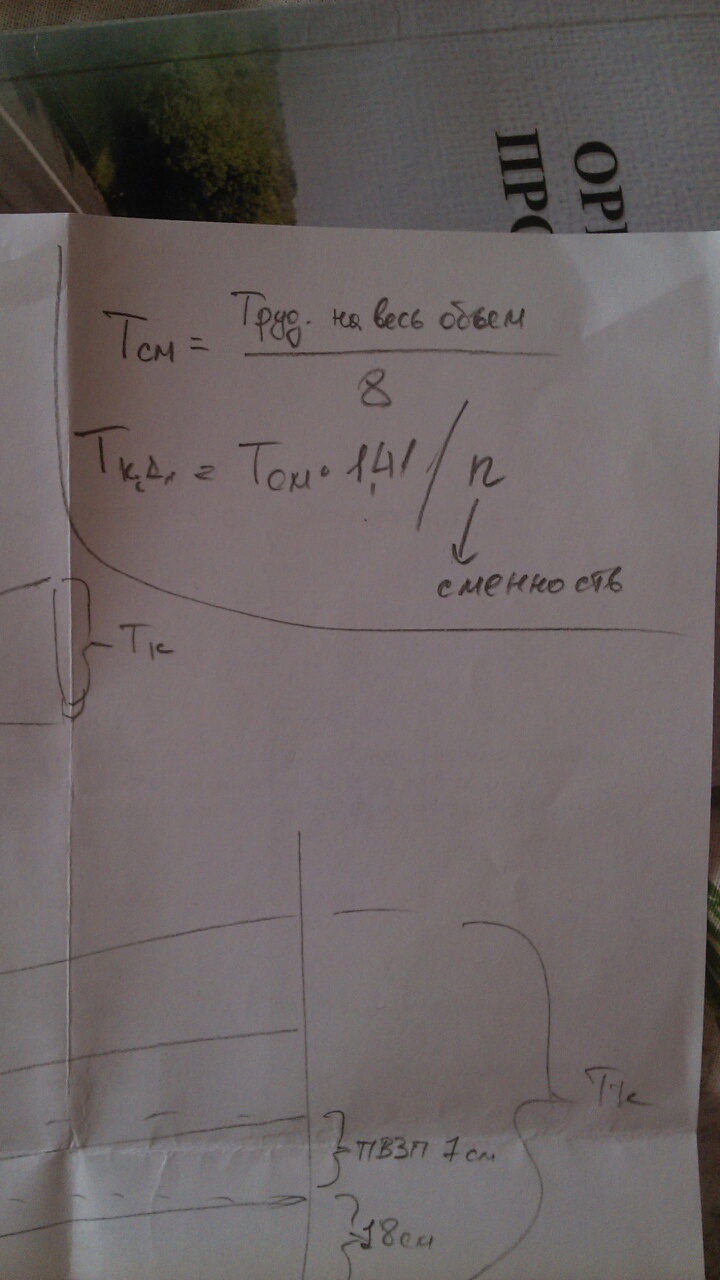 ОРГ
ПРО
Тсм = Труд. на весь объем
8
Тк.д. = Тсм · 1,41 / n
сменность
Тк
Тк
ПВЗП 7 см
18 см